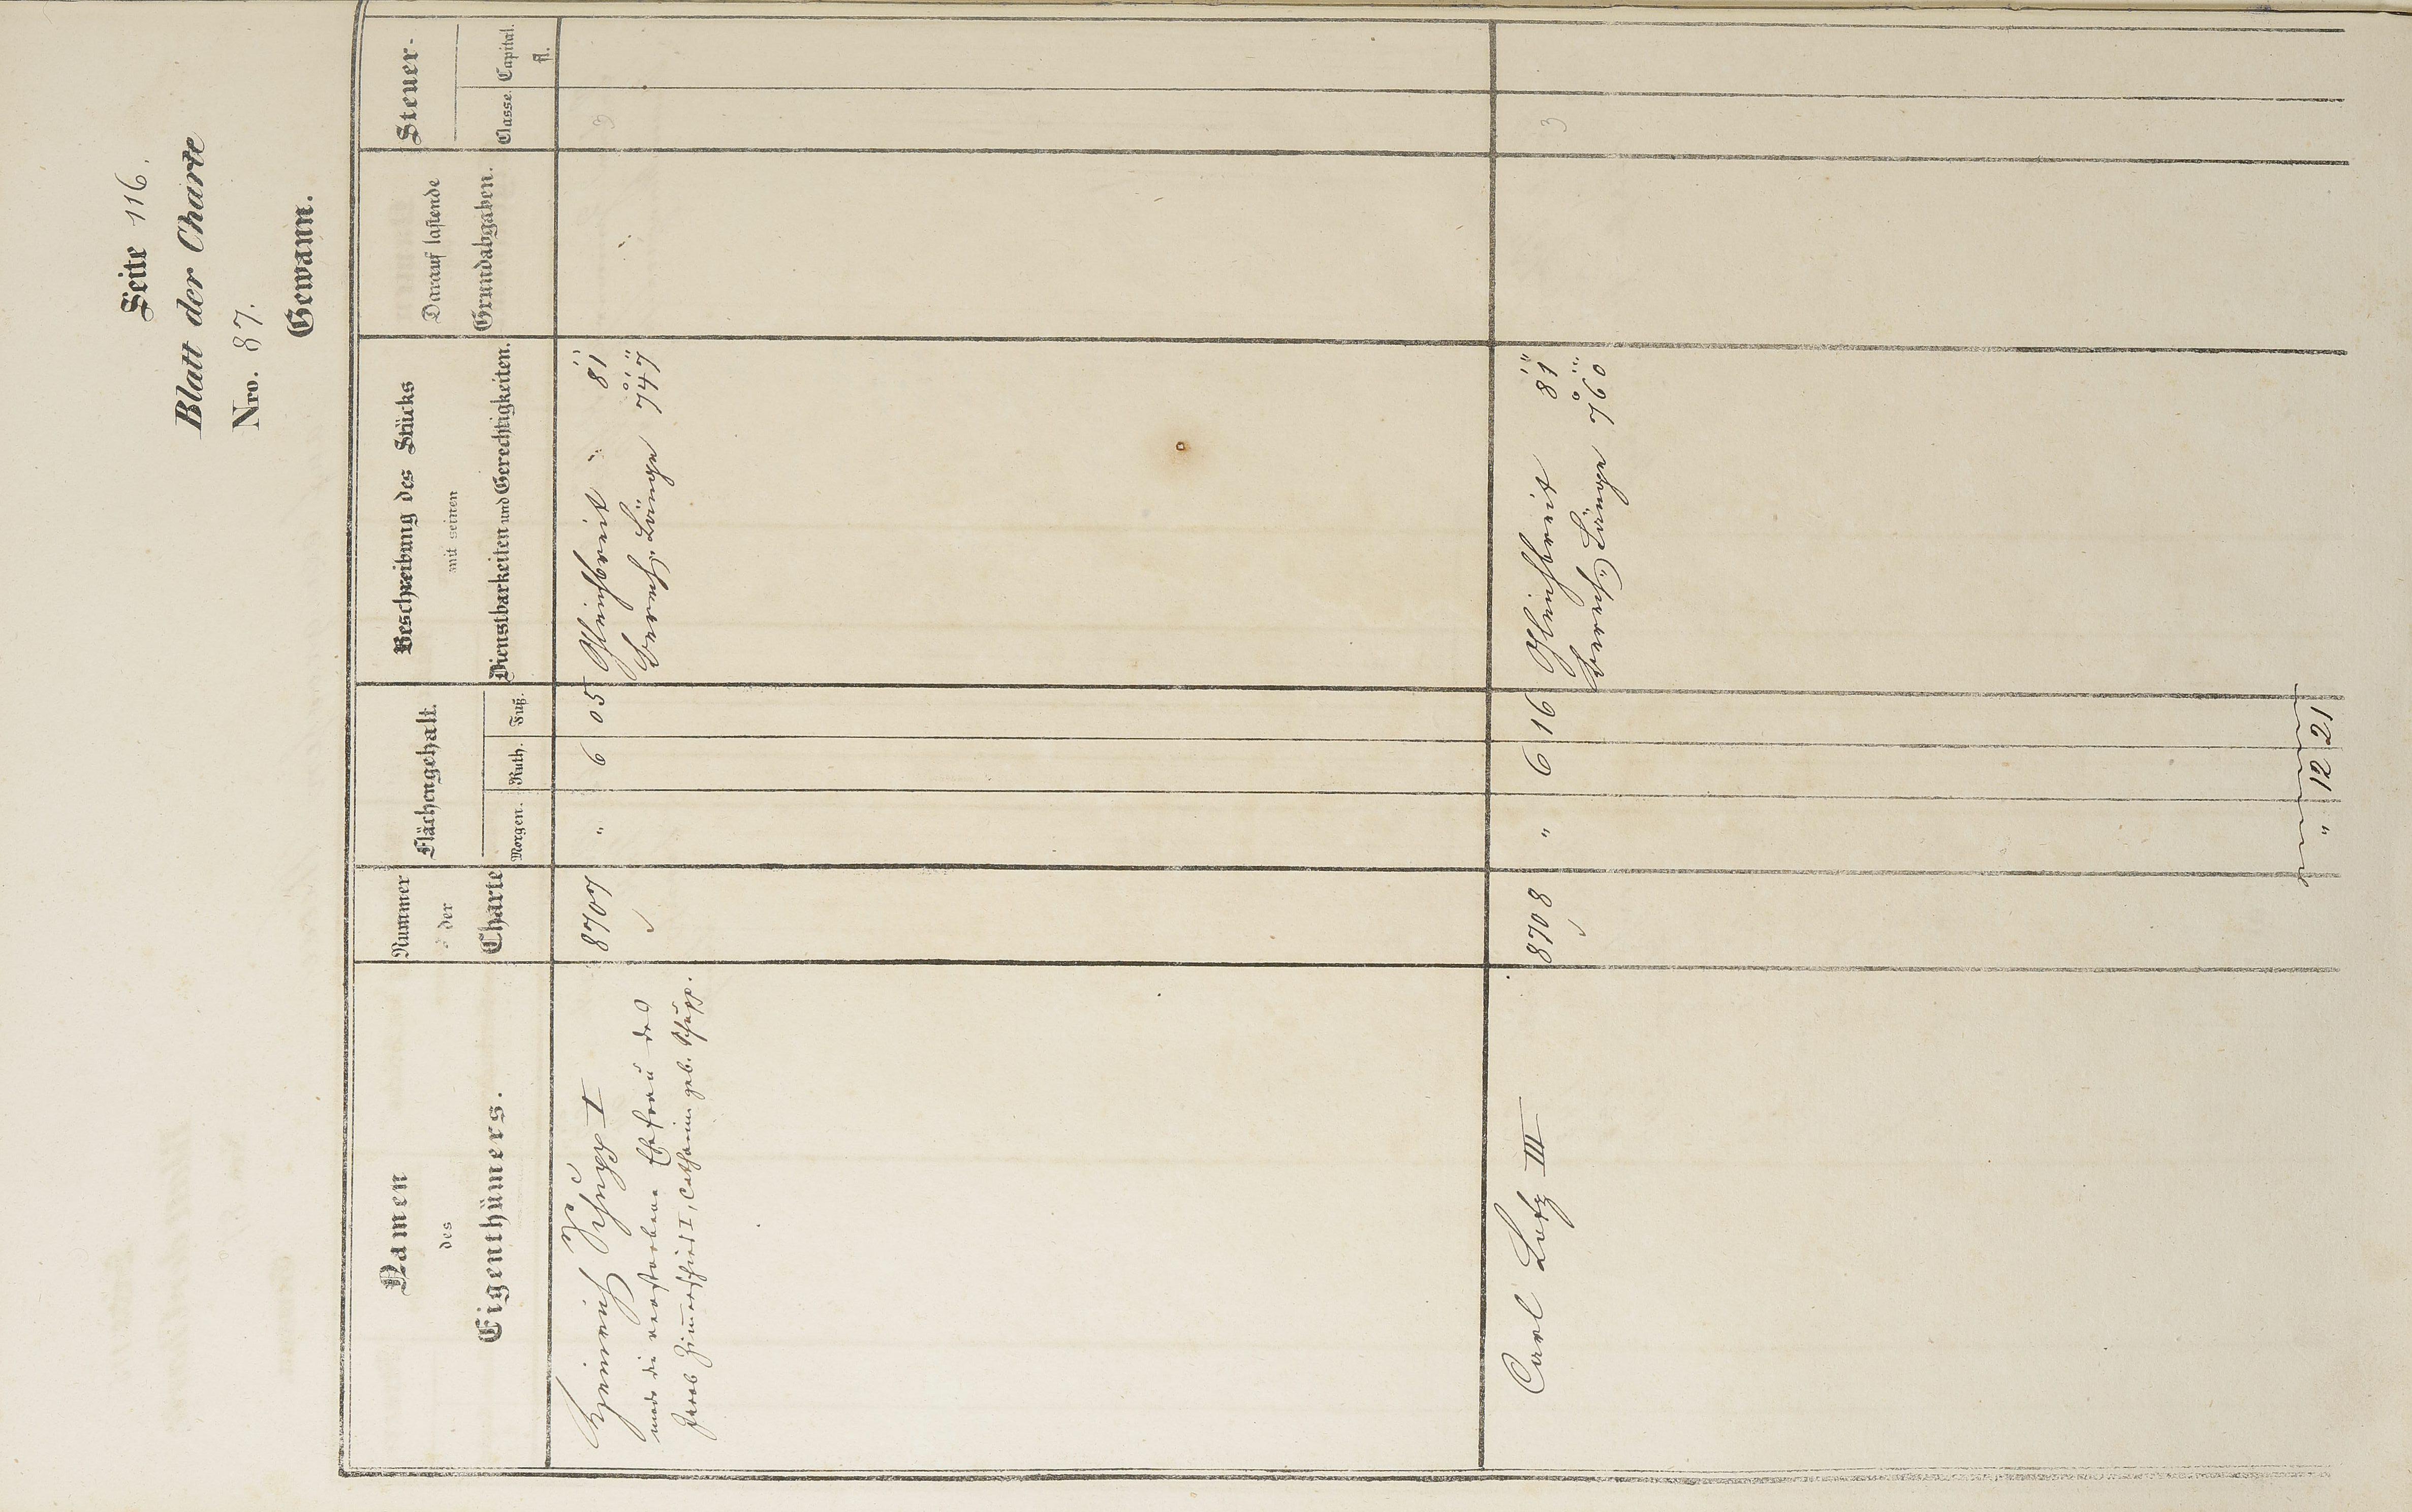 Seite 116.
Blatt der Charte
Nro. 87.
Gewann.
Namen
des
Eigenthümers.
Nummer
der
Charte
Flächengehalt.
Morgen. Ruth. Fuß.
Beschreibung des Stücks
mit seinen
Dienstbarkeiten und Gerechtigkeiten.
Darauf lastende
Grundabgaben.
Steuer-
Classe. Capital.
fl.
Heinrich Schupp I
modo die verstorbene Ehefrau des
Jacob Zimmerschied I, Catharine geb. Schupp.
8707 " 6 05 Gleichbreit 81
Berech. Länge 747
3
Carl Lotz III
8708 " 6 16 Gleichbreit 81
Berech. Länge 760
3
" 12 21